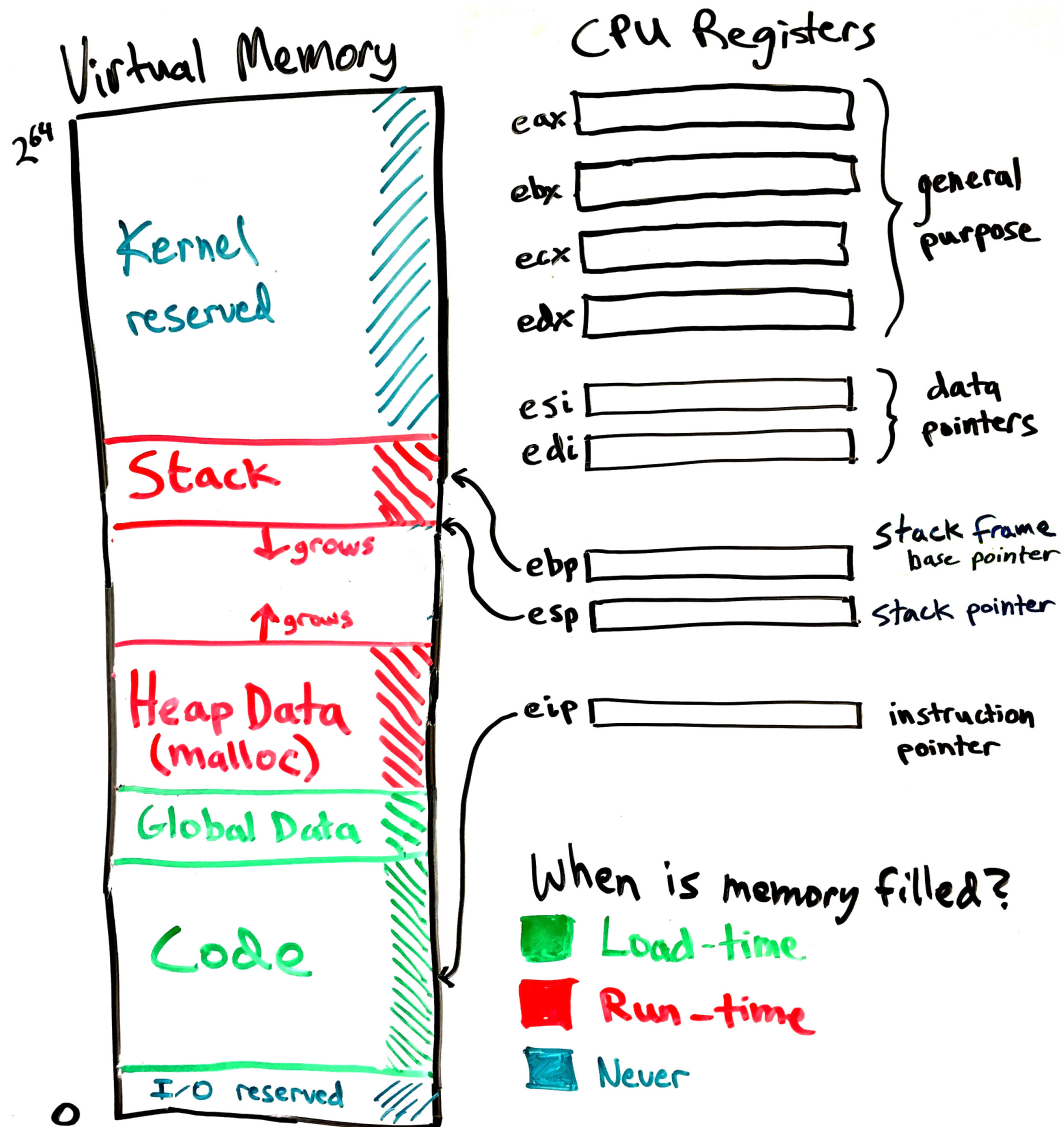 Virtual Memory
2^64
Kernel
reserved
Stack
↓ grows
↑ grows
Heap Data
(malloc)
Global Data
Code
I/O reserved
0
CPU Registers
eax
ebx
ecx
edx
general
purpose
esi
edi
data
pointers
ebp
stack frame
base pointer
esp
stack pointer
eip
instruction
pointer
When is memory filled?
Load-time
Run-time
Never